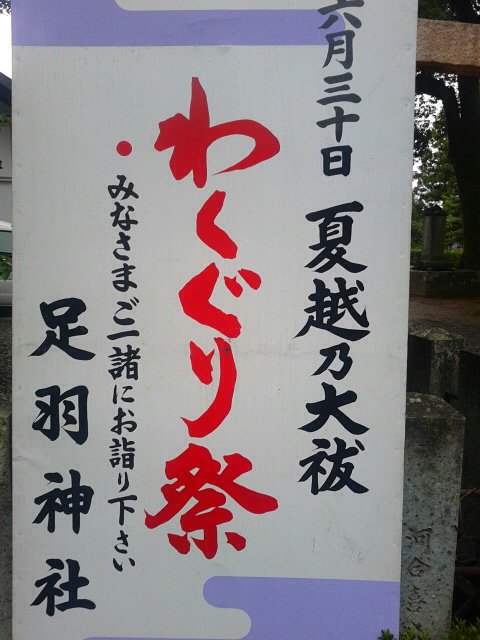 六月三十日 夏越乃大祓
わくぐり祭
・みなさまご一諸にお詣り下さい
足羽神社
河合